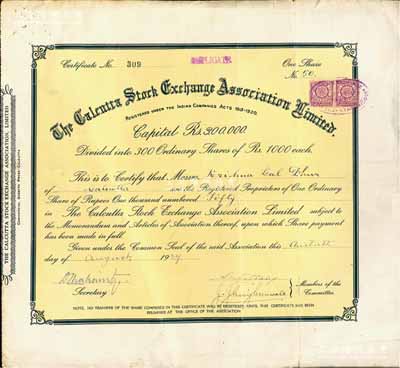 Certificate No. 309
DUPLICATE
One Share
No. 50.
The Calcutta Stock Exchange Association Limited.
REGISTERED UNDER THE INDIAN COMPANIES ACTS 1913-1920.
Capital Rs. 300,000.
Divided into 300 Ordinary Shares of Rs. 1000 each.
This is to Certify that Messrs Krishna Lal
of Calcutta is the Registered Proprietors of One Ordinary
Share of Rupees One thousand numbered Fifty
in The Calcutta Stock Exchange Association Limited subject to
the Memorandum and Articles of Association thereof, upon which Share payment
has been made in full.
Given under the Common Seal of the said Association this
day of August 19
Secretary
Members of the
Committee.
NOTE. NO TRANSFER OF THE SHARE COMPRISED IN THIS CERTIFICATE WILL BE REGISTERED UNTIL THIS CERTIFICATE HAS BEEN
DELIVERED AT THE OFFICE OF THE ASSOCIATION.
THE CALCUTTA STOCK EXCHANGE ASSOCIATION, LIMITED